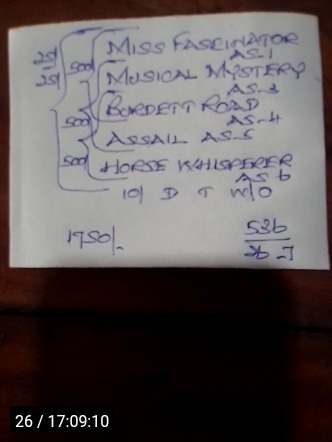 MISS FASCINATOR
AS-1
MUSICAL MYSTERY
AS-3
BURDETT ROAD
AS-4
ASSAIL AS-5
HORSE WHISPERER
AS 6
10/ D T W/O
500
500
500
1750/-
536
26 / 17:09:10